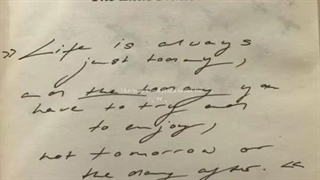 » Life is always
just today,
and the today you
have to try and
to enjoy,
not tomorrow or
the day after. «